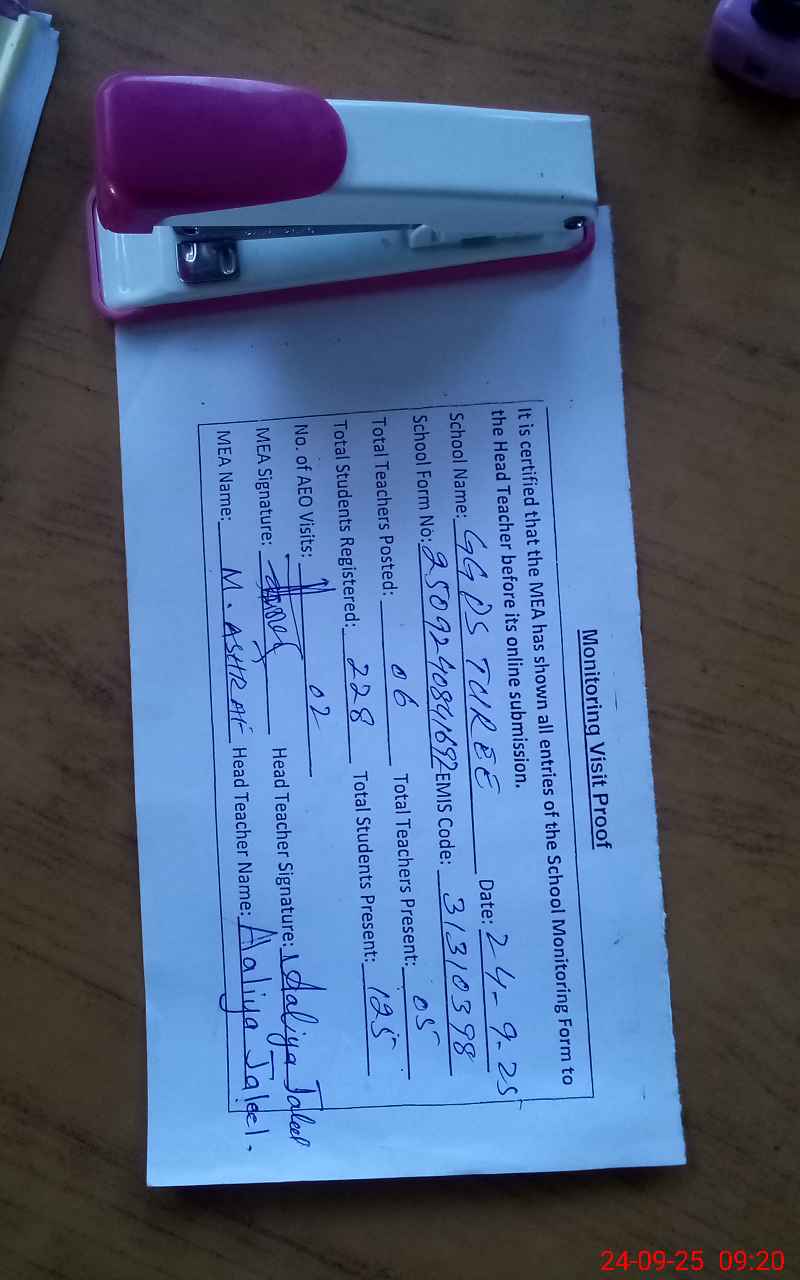 Monitoring Visit Proof
It is certified that the MEA has shown all entries of the School Monitoring Form to
the Head Teacher before its online submission.
School Name: GGPS TUREE Date: 24-9-25
School Form No: 250924084692 EMIS Code: 31310398
Total Teachers Posted: 06 Total Teachers Present: 05
Total Students Registered: 228 Total Students Present: 125
No. of AEO Visits: 02
MEA Signature: Head Teacher Signature: Aaliya Jaleel
MEA Name: M. ASHRAF Head Teacher Name: Aaliya Jaleel.
24-09-25 09:20